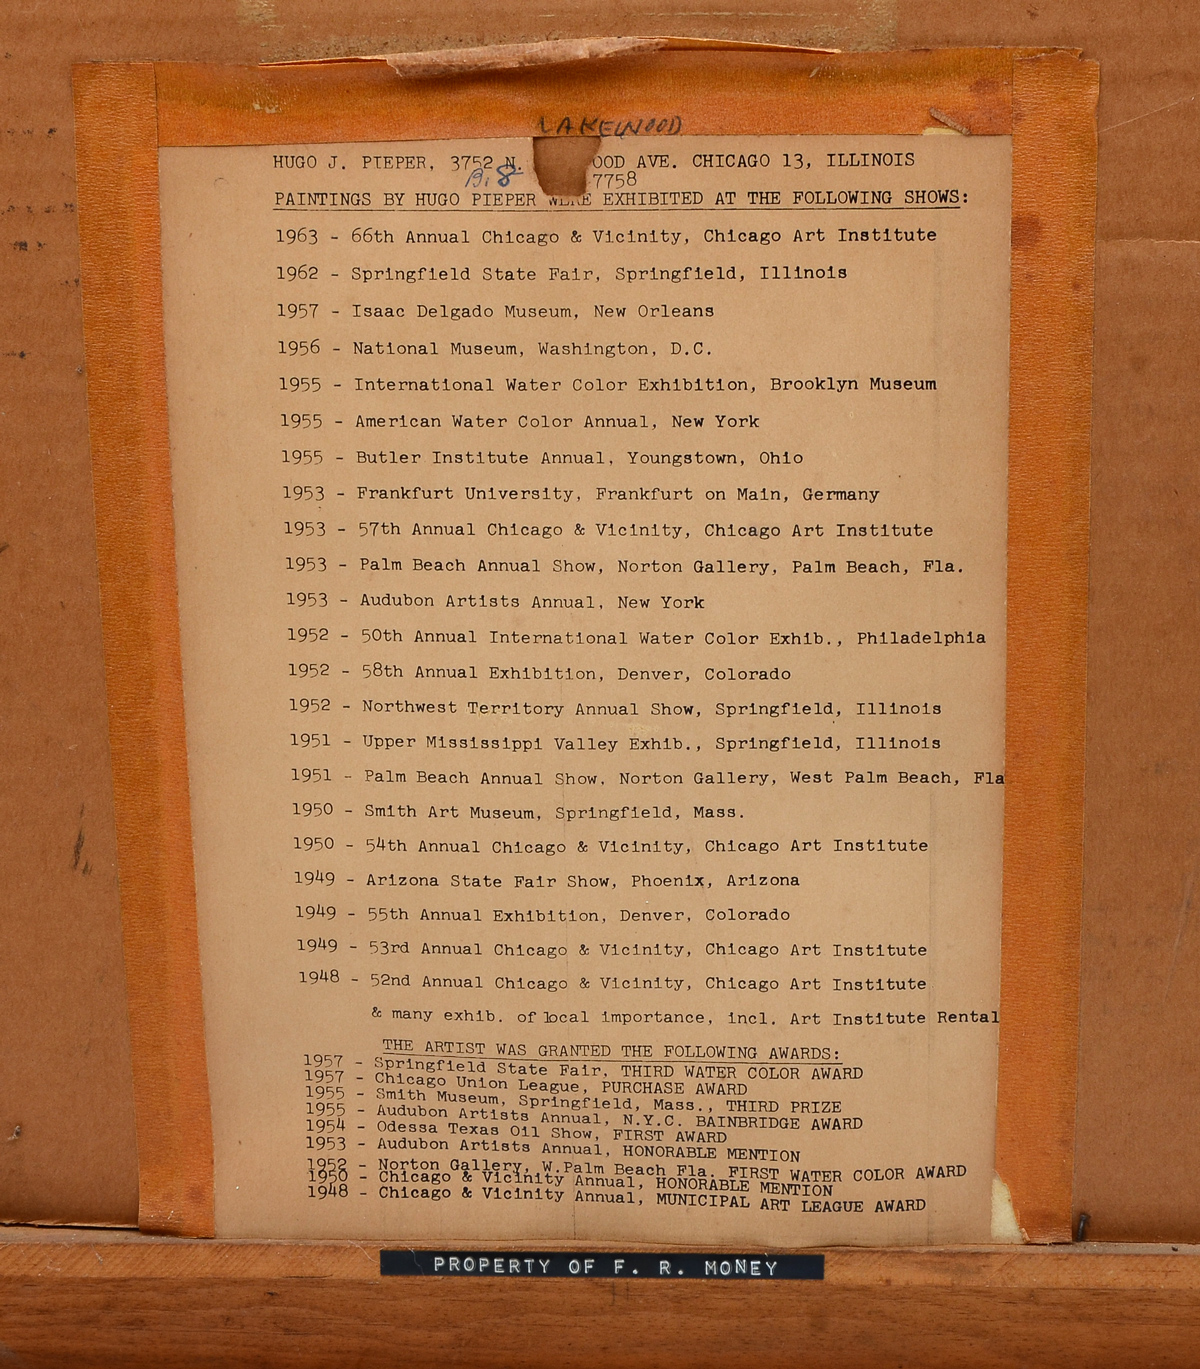 LAKEWOOD
HUGO J. PIEPER, 3752 N. OOD AVE. CHICAGO 13, ILLINOIS
7758
PAINTINGS BY HUGO PIEPER WERE EXHIBITED AT THE FOLLOWING SHOWS:
1963 - 66th Annual Chicago & Vicinity, Chicago Art Institute
1962 - Springfield State Fair, Springfield, Illinois
1957 - Isaac Delgado Museum, New Orleans
1956 - National Museum, Washington, D.C.
1955 - International Water Color Exhibition, Brooklyn Museum
1955 - American Water Color Annual, New York
1955 - Butler Institute Annual, Youngstown, Ohio
1953 - Frankfurt University, Frankfurt on Main, Germany
1953 - 57th Annual Chicago & Vicinity, Chicago Art Institute
1953 - Palm Beach Annual Show, Norton Gallery, Palm Beach, Fla.
1953 - Audubon Artists Annual, New York
1952 - 50th Annual International Water Color Exhib., Philadelphia
1952 - 58th Annual Exhibition, Denver, Colorado
1952 - Northwest Territory Annual Show, Springfield, Illinois
1951 - Upper Mississippi Valley Exhib., Springfield, Illinois
1951 - Palm Beach Annual Show, Norton Gallery, West Palm Beach, Fla
1950 - Smith Art Museum, Springfield, Mass.
1950 - 54th Annual Chicago & Vicinity, Chicago Art Institute
1949 - Arizona State Fair Show, Phoenix, Arizona
1949 - 55th Annual Exhibition, Denver, Colorado
1949 - 53rd Annual Chicago & Vicinity, Chicago Art Institute
1948 - 52nd Annual Chicago & Vicinity, Chicago Art Institute
& many exhib. of local importance, incl. Art Institute Rental
THE ARTIST WAS GRANTED THE FOLLOWING AWARDS:
1957 - Springfield State Fair, THIRD WATER COLOR AWARD
1957 - Chicago Union League, PURCHASE AWARD
1955 - Smith Museum, Springfield, Mass., THIRD PRIZE
1955 - Audubon Artists Annual, N.Y.C. BAINBRIDGE AWARD
1954 - Odessa Texas Oil Show, FIRST AWARD
1953 - Audubon Artists Annual, HONORABLE MENTION
1952 - Norton Gallery, W.Palm Beach Fla. FIRST WATER COLOR AWARD
1950 - Chicago & Vicinity Annual, HONORABLE MENTION
1948 - Chicago & Vicinity Annual, MUNICIPAL ART LEAGUE AWARD
PROPERTY OF F. R. MONEY